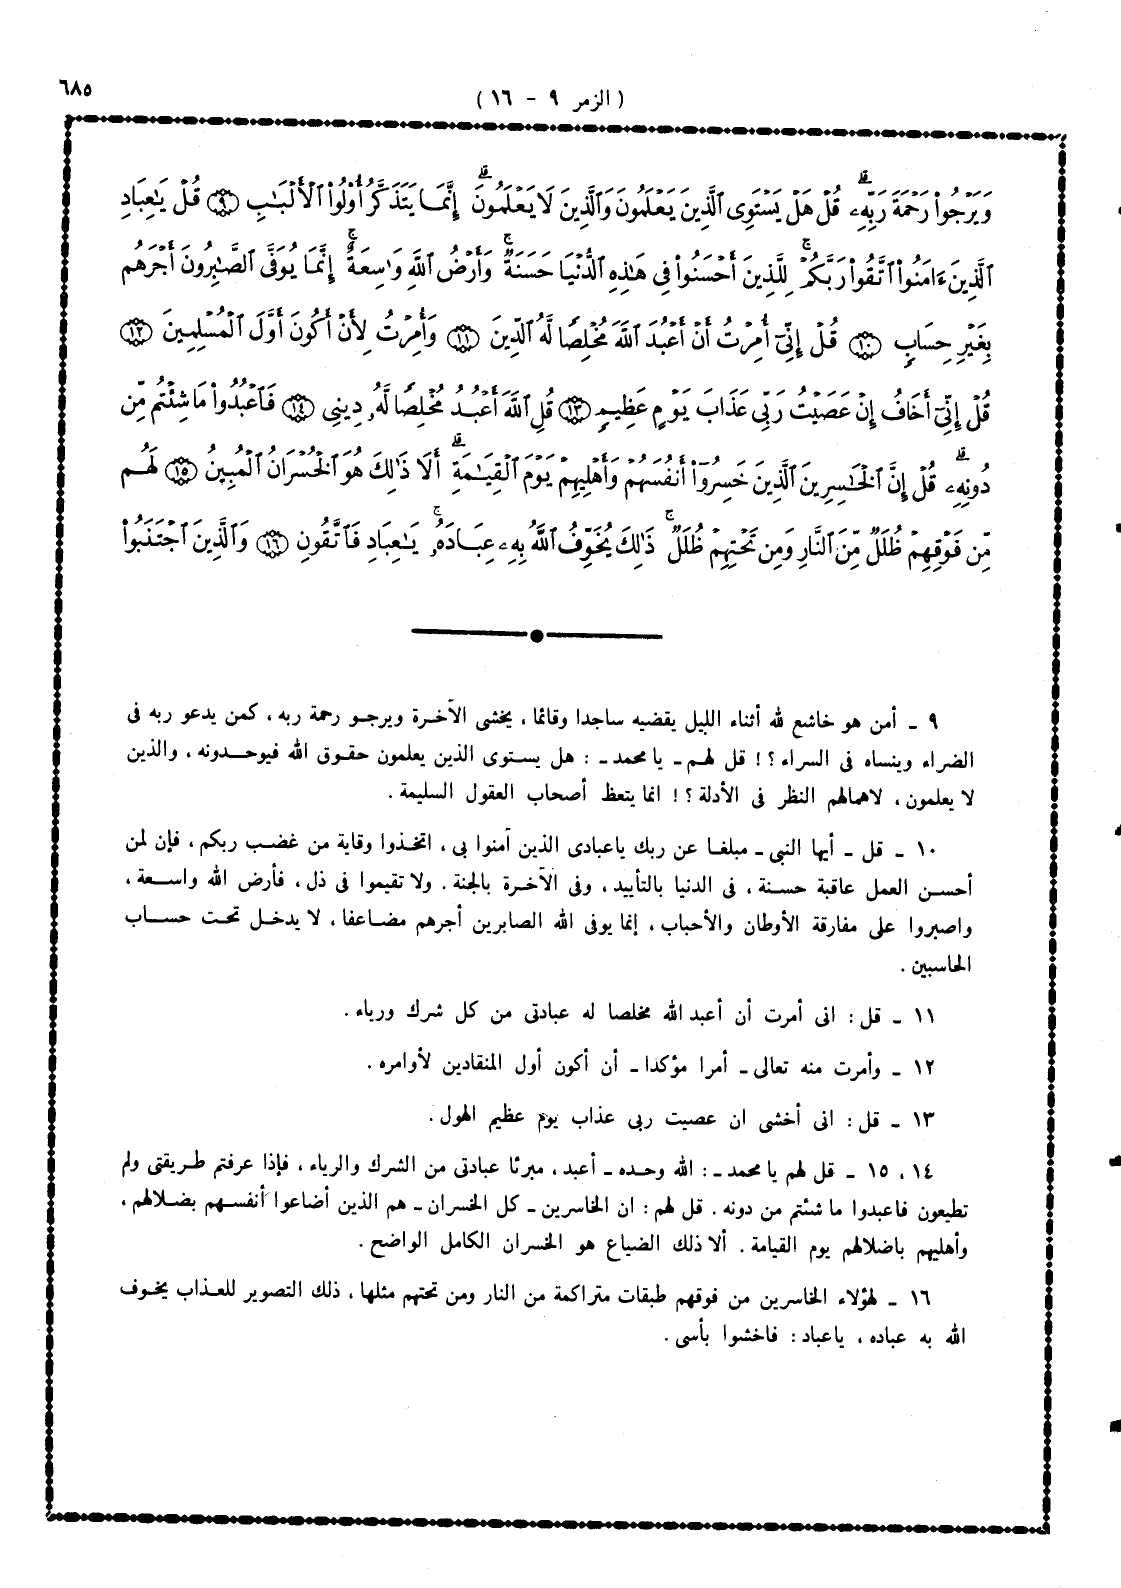 ٦٨٥
( الزمر ٩ - ١٦ )
وَيَرْجُوا۟ رَحْمَةَ رَبِّهِۦ ۗ قُلْ هَلْ يَسْتَوِى ٱلَّذِينَ يَعْلَمُونَ وَٱلَّذِينَ لَا يَعْلَمُونَ ۗ إِنَّمَا يَتَذَكَّرُ أُو۟لُوا۟ ٱلْأَلْبَـٰبِ ﴿٩﴾ قُلْ يَـٰعِبَادِ
ٱلَّذِينَ ءَامَنُوا۟ ٱتَّقُوا۟ رَبَّكُمْ ۚ لِلَّذِينَ أَحْسَنُوا۟ فِى هَـٰذِهِ ٱلدُّنْيَا حَسَنَةٌ ۗ وَأَرْضُ ٱللَّهِ وَٰسِعَةٌ ۗ إِنَّمَا يُوَفَّى ٱلصَّـٰبِرُونَ أَجْرَهُم
بِغَيْرِ حِسَابٍ ﴿١٠﴾ قُلْ إِنِّىٓ أُمِرْتُ أَنْ أَعْبُدَ ٱللَّهَ مُخْلِصًا لَّهُ ٱلدِّينَ ﴿١١﴾ وَأُمِرْتُ لِأَنْ أَكُونَ أَوَّلَ ٱلْمُسْلِمِينَ ﴿١٢﴾
قُلْ إِنِّىٓ أَخَافُ إِنْ عَصَيْتُ رَبِّى عَذَابَ يَوْمٍ عَظِيمٍ ﴿١٣﴾ قُلِ ٱللَّهَ أَعْبُدُ مُخْلِصًا لَّهُۥ دِينِى ﴿١٤﴾ فَٱعْبُدُوا۟ مَا شِئْتُم مِّن
دُونِهِۦ ۗ قُلْ إِنَّ ٱلْخَـٰسِرِينَ ٱلَّذِينَ خَسِرُوٓا۟ أَنفُسَهُمْ وَأَهْلِيهِمْ يَوْمَ ٱلْقِيَـٰمَةِ ۗ أَلَا ذَٰلِكَ هُوَ ٱلْخُسْرَانُ ٱلْمُبِينُ ﴿١٥﴾ لَهُم
مِّن فَوْقِهِمْ ظُلَلٌ مِّنَ ٱلنَّارِ وَمِن تَحْتِهِمْ ظُلَلٌ ۚ ذَٰلِكَ يُخَوِّفُ ٱللَّهُ بِهِۦ عِبَادَهُۥ ۚ يَـٰعِبَادِ فَٱتَّقُونِ ﴿١٦﴾ وَٱلَّذِينَ ٱجْتَنَبُوا۟
٩ ـ أمن هو خاشع لله أثناء الليل يقضيه ساجدا وقائما ، يخشى الآخرة ويرجو رحمة ربه ، كمن يدعو ربه فى
الضراء وينساه فى السراء ؟ ! قل لهم ـ يا محمد ـ : هل يستوى الذين يعلمون حقوق الله فيوحدونه ، والذين
لا يعلمون ، لاهمالهم النظر فى الأدلة ؟ ! انما يتعظ أصحاب العقول السليمة .
١٠ ـ قل ـ أيها النبى ـ مبلغا عن ربك ياعبادى الذين آمنوا بى ، اتخذوا وقاية من غضب ربكم ، فإن لمن
أحسن العمل عاقبة حسنة ، فى الدنيا بالتأييد ، وفى الآخرة بالجنة . ولا تقيموا فى ذل ، فأرض الله واسعة ،
واصبروا على مفارقة الأوطان والأحباب ، إنما يوفى الله الصابرين أجرهم مضاعفا ، لا يدخل تحت حساب
الحاسبين .
١١ ـ قل : انى أمرت أن أعبد الله مخلصا له عبادتى من كل شرك ورياء .
١٢ ـ وأمرت منه تعالى ـ أمرا مؤكدا ـ أن أكون أول المنقادين لأوامره .
١٣ ـ قل : انى أخشى ان عصيت ربى عذاب يوم عظيم الهول .
١٤ ، ١٥ ـ قل لهم يا محمد ـ : الله وحده ـ أعبد ، مبرئا عبادتى من الشرك والرياء ، فإذا عرفتم طريقتى ولم
تطيعون فاعبدوا ما شئتم من دونه . قل لهم : ان الخاسرين ـ كل الخسران ـ هم الذين أضاعوا أنفسهم بضلالهم ،
وأهليهم باضلالهم يوم القيامة . ألا ذلك الضياع هو الخسران الكامل الواضح .
١٦ ـ لهؤلاء الخاسرين من فوقهم طبقات متراكمة من النار ومن تحتهم مثلها ، ذلك التصوير للعذاب يخوف
الله به عباده ، ياعباد : فاخشوا بأسى .